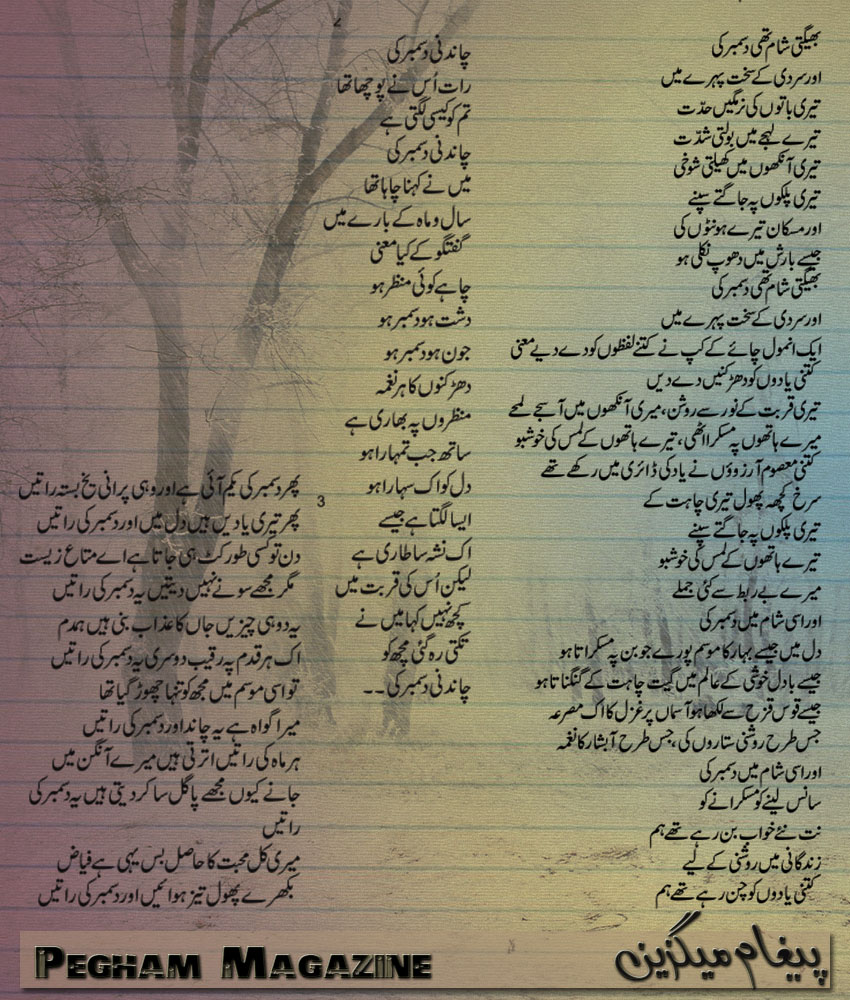 بھیگتی شام تھی دسمبر کی
اور سردی کے سخت پہرے میں
تیری باتوں کی نرمگیں حدّت
تیرے لہجے میں بولتی شدّت
تیری آنکھوں میں کھیلتی شوخی
تیری پلکوں پہ جاگتے سپنے
اور مسکان تیرے ہونٹوں کی
جیسے بارش میں دھوپ نکلی ہو
بھیگتی شام تھی دسمبر کی
اور سردی کے سخت پہرے میں
ایک انمول چائے کے کپ نے کتنے لفظوں کو دے دیے معنی
کتنی یادوں کو دھڑکنیں دے دیں
تیری قربت کے نور سے روشن، میری آنکھوں میں آ سجے لمحے
میرے ہاتھوں پہ مسکرا اٹھی، تیرے ہاتھوں کے لمس کی خوشبو
کتنی معصوم آرزوؤں نے یاد کی ڈائری میں رکھے تھے
سرخ کچھہ پھول تیری چاہت کے
تیری پلکوں پہ جاگتے سپنے
تیرے ہاتھوں کے لمس کی خوشبو
میرے بے ربط سے کئی جملے
اور اسی شام میں دسمبر کی
دل میں جیسے بہار کا موسم پورے جوبن پہ مسکراتا ہو
جیسے بادل خوشی کے عالم میں گیت چاہت کے گنگناتا ہو
جیسے قوس قزح سے لکھا ہو آسماں پر غزل کا اک مصرعہ
جس طرح روشنی ستاروں کی، جس طرح آبشار کا نغمہ
اور اسی شام میں دسمبر کی
سانس لینے کو مسکرانے کو
نت نئے خواب بن رہے تھے ہم
زندگانی میں روشنی کے لیے
کتنی یادوں کو چن رہے تھے ہم
2
چاندنی دسمبر کی
رات اُس نے پوچھا تھا
تم کو کیسی لگتی ہے
چاندنی دسمبر کی
میں نے کہنا چاہا تھا
سال و ماہ کے بارے میں
گفتگو کے کیا معنی
چاہے کوئی منظر ہو
دشت ہو دسمبر ہو
جون ہو دسمبر ہو
دھڑکنوں کا ہر نغمہ
منظروں پہ بھاری ہے
ساتھ جب تمہارا ہو
دل کو اک سہارا ہو
ایسا لگتا ہے جیسے
اک نشہ سا طاری ہے
لیکن اُس کی قربت میں
کچھ نہیں کہا میں نے
تکتی رہ گئی مجھ کو
چاندنی دسمبر کی ۔۔
3
پھر دسمبر کی یکم آئی ہے اور وہی پرانی یخ بستہ راتیں
پھر تیری یادیں ہیں دل میں اور دسمبر کی راتیں
دن تو کسی طور کٹ ہی جاتا ہے اے متاع زیست
مگر مجھے سونے نہیں دیتیں یہ دسمبر کی راتیں
یہ دو ہی چیزیں جاں کا عذاب بنی ہیں ہمدم
اک ہر قدم پہ رقیب دوسری یہ دسمبر کی راتیں
تو اسی موسم میں مجھ کو تنہا چھوڑ گیا تھا
میرا گواہ ہے یہ چاند اور دسمبر کی راتیں
ہر ماہ کی راتیں اترتی ہیں میرے آنگن میں
جانے کیوں مجھے پاگل سا کر دیتی ہیں یہ دسمبر کی
راتیں
میری کل محبت کا حاصل بس یہی ہے فیاض
بکھرے پھول تیز ہوائیں اور دسمبر کی راتیں
پیغام میگزین
PEGHAM MAGAZINE